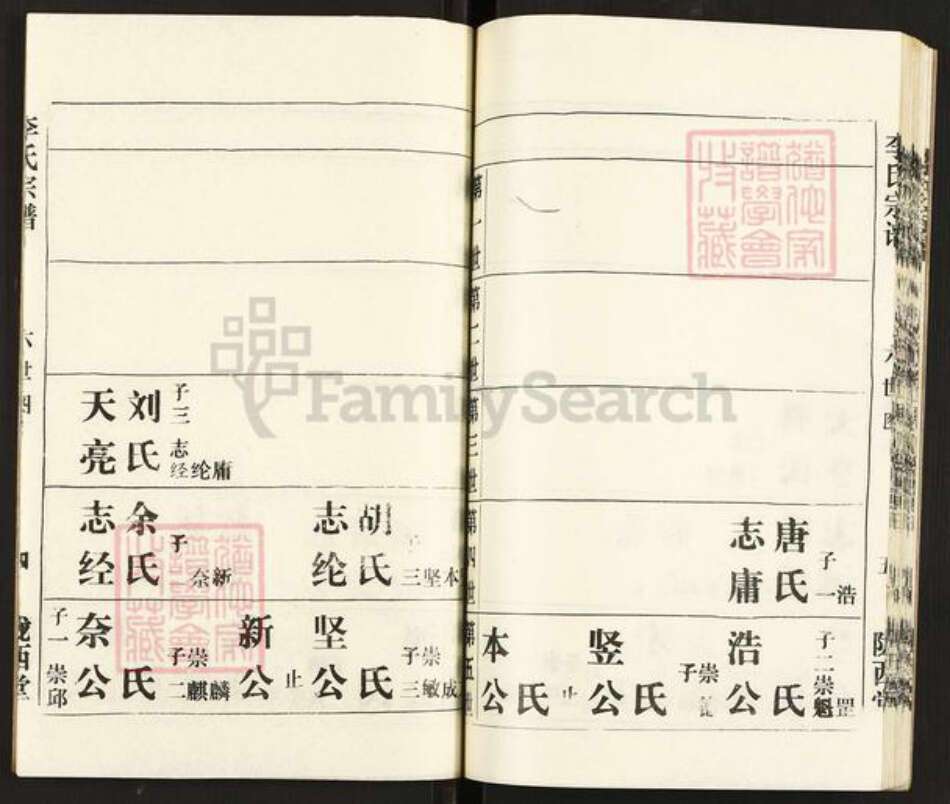 李氏宗谱
六世图
五
陇西堂
第一世
第二世
第三世
第四世
第五世
唐氏
志庸
子一 浩
子二 崇魁 罡
浩公 氏
子 崇
竖公 氏
止
本公 氏
李氏宗谱
六世图
四
陇西堂
刘氏
天亮
子三 志经 纶 庸
胡氏
志纶
三 坚 本
余氏
志经
子 奈 新
子三 崇敏 成
坚公 氏
止
新公
子二 崇麒 麟
奈公 氏
子一 崇邱
FamilySearch